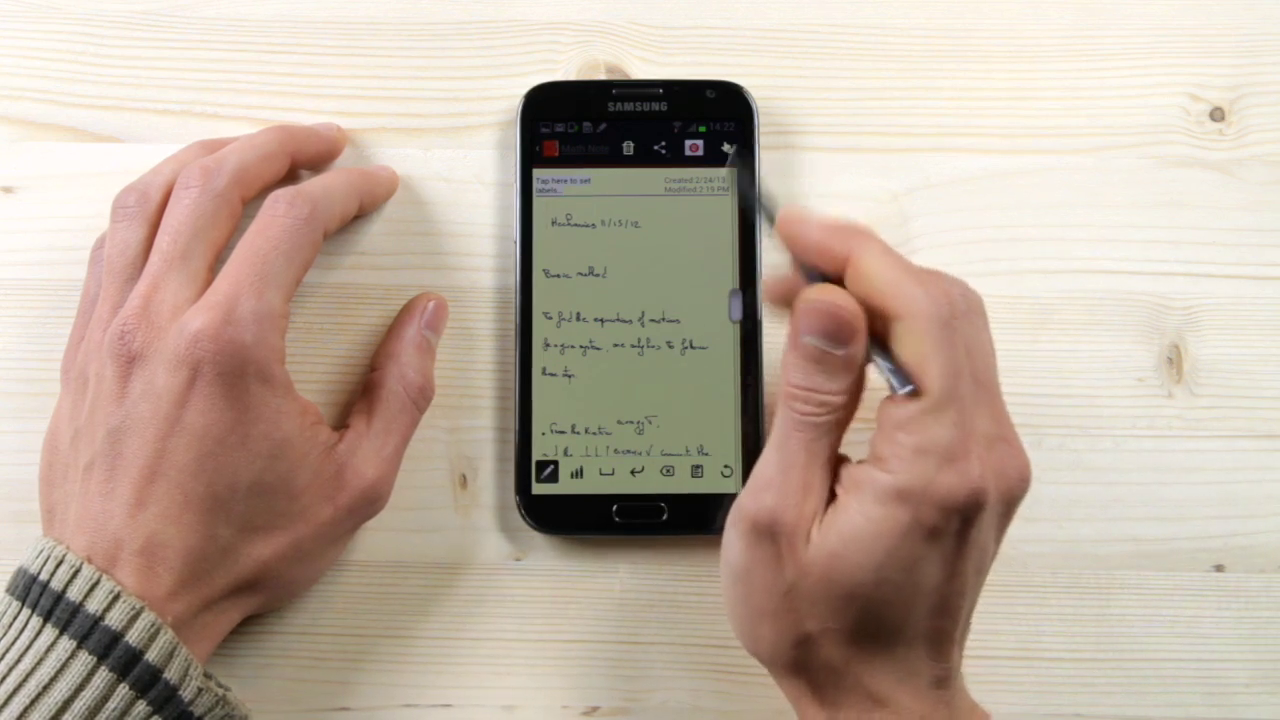 SAMSUNG
14:22
Math Note
Tap here to set
labels...
Created:2/24/13
Modified:2:19 PM
Mechanics 11/15/12
Basic method
To find the equations of motions
for a given system, one only has to follow
these step.
. From the Kinetic energy T,
and the energy V compute the